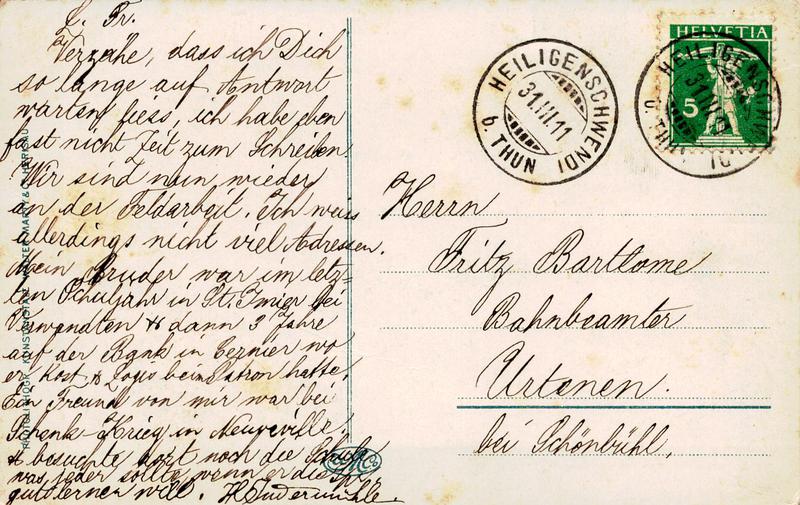 L. Fr.
Verzeihe, dass ich Dich
so lange auf Antwort
warten liess, ich habe eben
fast nicht Zeit zum Schreiben.
Wir sind nun wieder
an der Feldarbeit. Ich weiss
allerdings nicht viel Adressen.
Mein Bruder war im letz-
ten Schuljahr in St. Imier bei
Verwandten & dann 3 Jahre
auf der Bank in Cernier wo
er Kost & Logis beim Patron hatte.
Ein Freund von mir war bei
Schenk-Krieg in Neuveville.
& besuchte dort noch die Schule
was jeder sollte, wenn er die Spr.
gut lernen will.
HEILIGENSCHWENDI
31.III.11
b. THUN
HELVETIA
5
HEILIGENSCHWENDI
31.III.11
b. THUN
Herrn
Fritz Bartlome
Bahnbeamter
Urtenen.
bei Schönbühl,